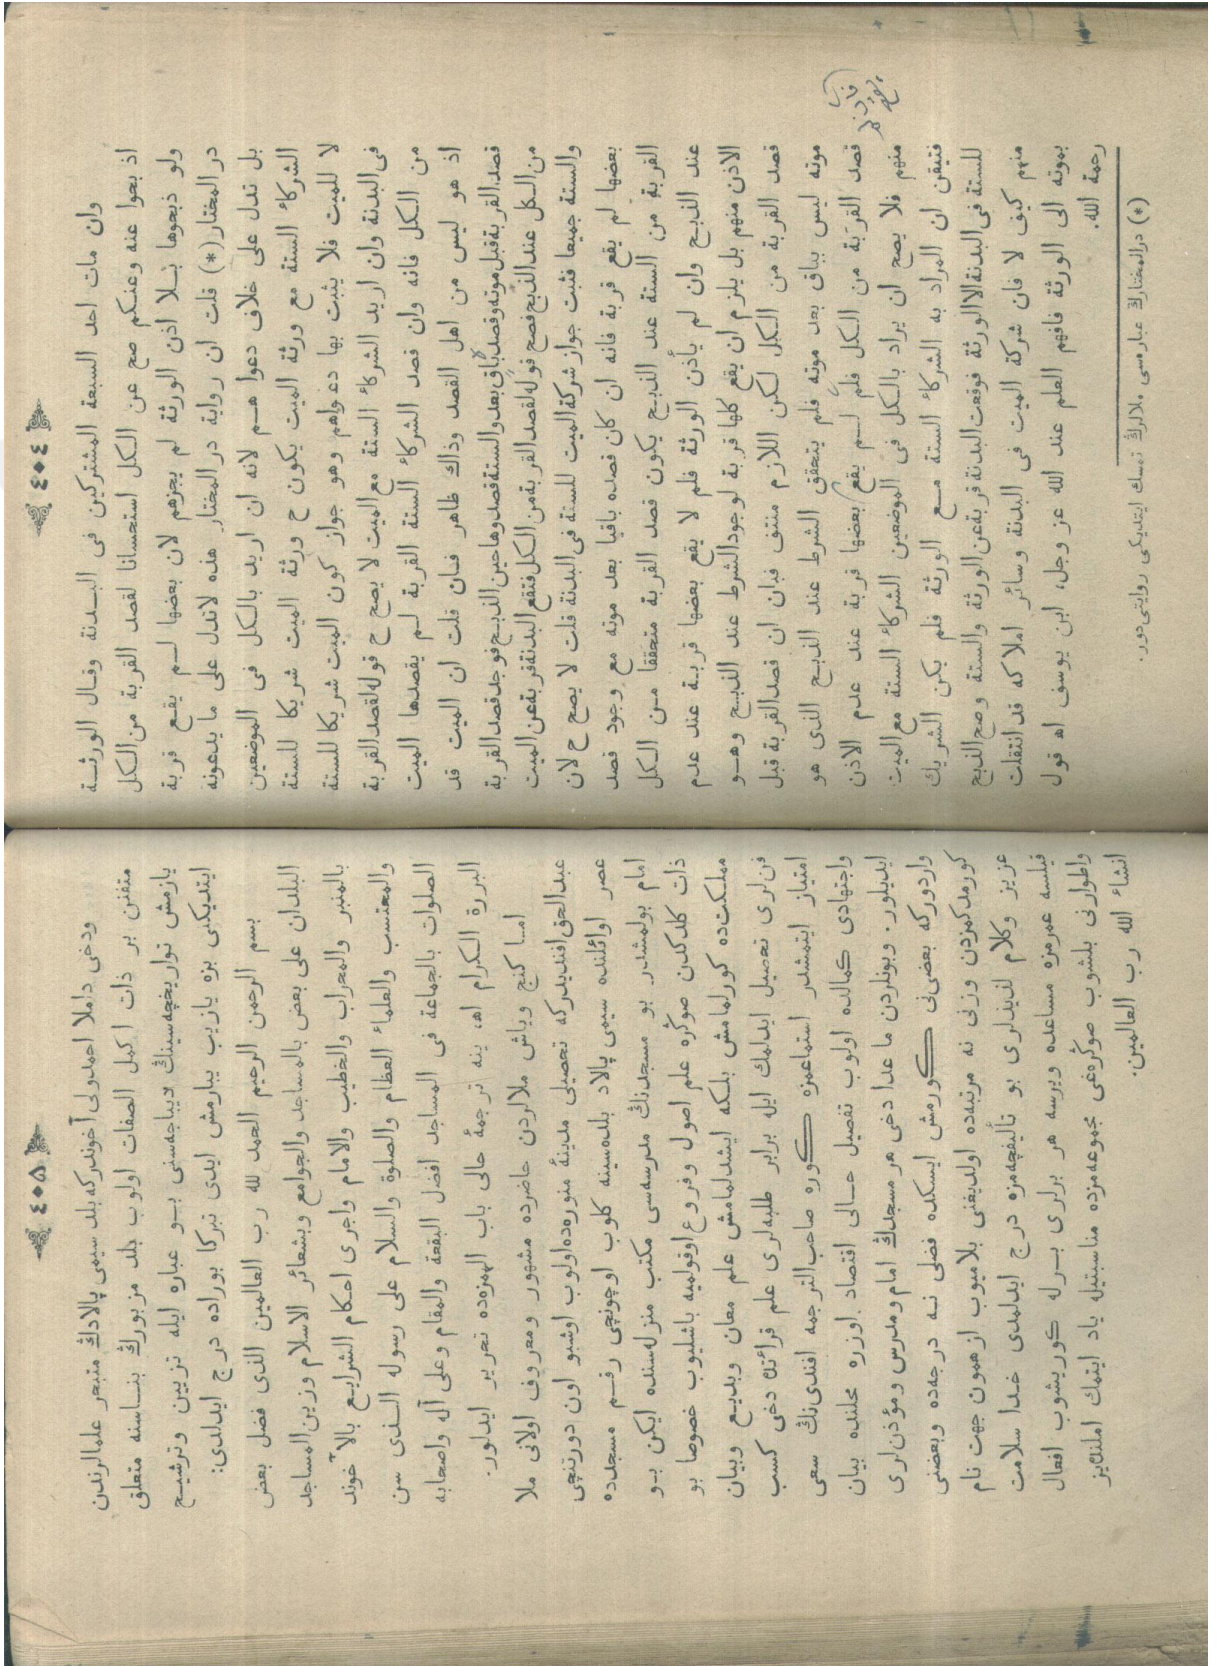 ﴿ ٤٠٤ ﴾
وان مات احد السبعة المشتركين فى البدنة وقال الورثة
اذبحوا عنه وعنكم صح عن الكل استحسانا لقصد القربة من الكل
ولو ذبحوها بلا اذن الورثة لم يجزهم لان بعضها لم يقع قربة
در المختار (*) قلت ان رواية در المختار هذه لاتدل على ما يدعونه
بل تدل على خلاف دعوا هم لانه ان اريد بالكل فى الموضعين
الشركاء الستة مع ورثة الميت يكون ح ورثة الميت شريكا للستة
لا للميت فلا يثبت بها دعواهم وهو جواز كون الميت شريكا للستة
فى البدنة وان اريد الشركاء الستة مع الميت لا يصح ح قوله لقصد القربة
من الكل فانه وان قصد الشركاء الستة القربة لم يقصدها الميت
اذ هو ليس من اهل القصد وذاك ظاهر فان قلت ان الميت قد
قصد القربة قبل موته وقصد باق بعد والستة قصدوها حين الذبح فوجد قصد القربة
من الكل عند الذبح فصح قوله لقصد القربة من الكل فتقع البدنة قربة عن الميت
والستة جميعا فثبت جواز شركة الميت للستة فى البدنة قلت لا يصح ح لان
بعضها لم يقع قربة فانه ان كان قصده باقيا بعد موته مع وجود قصد
القربة من الستة عند الذبح يكون قصد القربة متحققا من الكل
عند الذبح وان لم يأذن الورثة فلم لا يقع بعضها قربة عند عدم
الاذن منهم بل يلزم ان يقع كلها قربة لوجود الشرط عند الذبح وهو
قصد القربة من الكل لكن اللازم منتف فبان ان قصد القربة قبل
موته ليس بباق بعد موته فلم يتحقق الشرط عند الذبح الذى هو
قصد القربة من الكل فلم لم يقع بعضها قربة عند عدم الاذن
منهم فلا يصح ان يراد بالكل فى الموضعين الشركاء الستة مع الميت
فتيقن ان المراد به الشركاء الستة مع الورثة فلم يكن الشريك
للستة فى البدنة الا الورثة فوقعت البدنة قربة عن الورثة والستة وصح الذبح
منهم كيف لا فان شركة الميت فى البدنة وسائر املاكه قد انتقلت
بموته الى الورثة فافهم العلم عند الله عز وجل، ابن يوسف اه قول
رحمة الله.
(*) درالمختارڭ عبارسى ملالرڭ تمسك ايتديكى روايتى دور.
﴿ ٤٠٥ ﴾
ودخى داملا احمدولى آخونددركه بلد سيمى پالادڭ متبحر علمالرندن
متفنن بر ذات اكمل الصفات اولوب بلد مزبورڭ بناسنه متعلق
يازمش تواريخچه سينڭ ديباجه سنى بو عباره ايله تزيين وترشيح
ايتديكنى بزه يازيب يبارمش ايدى تبركا بوراده درج ايدلدى:
بسم الرحمن الرحيم الحمد لله رب العالمين الذى فضل بعض
البلدان على بعض بالمساجد والجوامع وبشعائر الاسلام وزين المساجد
بالمنبر والمحراب والخطيب والامام واجرى احكام الشرايع بالآخوند
والمحتسب والعلماء العظام والصلوة والسلام على رسوله الذى سن
الصلوات بالجماعة فى المساجد افضل البقعة والمقام وعلى آله واصحابه
البررة الكرام اه، ينه ترجمۀ حالى باب الهمزه‌ده تحرير ايدلور.
اما كنج وياش ملالردن حاضرده مشهور ومعروف اولانى ملا
عبدالحق افنديدركه تحصيلى مدينۀ منوره‌ده اولوب اوشبو اون دورتنچى
عصر اوائلنده سيمى پالاد بلده سينه كلوب اوچونچى رقم مسجدده
امام بولمشدر بو مسجدنڭ مدرسه‌سى مكتب منزله‌سنده ايكن بو
ذات كلدكدن صوڭره علم اصول وفروع اوقولميه باشليوب خصوصا بو
مملكت‌ده كورلمامش بلكه ايشدلمامش علم معان وبديع وبيان
فن‌لرى تحصيل ايدلمك ايله برابر طلبه‌لرى علم قرائتده دخى كسب
امتياز ايتمشدر استماعمزه كوره صاحب الترجمه افندى‌نڭ سعى
واجتهادى كمالده اولوب تفصيل حالى اقتصاد اوزره محلنده بيان
ايديلور. وبونلردن ما عدا دخى هر مسجدڭ امام ومدرس ومؤذن‌لرى
واردوركه بعضى‌نى كورمش ايسكده فضلى نه درجه‌ده وبعضنى
كورمدكمزدن وزنى نه مرتبه‌ده اولديغنى بلاميوب ازهمون جهت نام
عزيز وكلام لذيذلرى بو تأليفچه‌مزه درج ايدلمدى خدا سلامت
قيلسه عمرمزه مساعده ويرسه هر برلرى برله كوريشوب افعال
واطوارنى بلشوب صوڭره‌غى مجموعه‌مزده مناسبتيله ياد ايتمك املنده‌يز
انشاء الله رب العالمين.